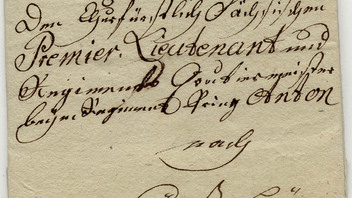 Den Churfürstlich Sächsischen
Premier-Lieutenant und
Regiments Quartiermeister
beym Regiment Prinz Anton
nach